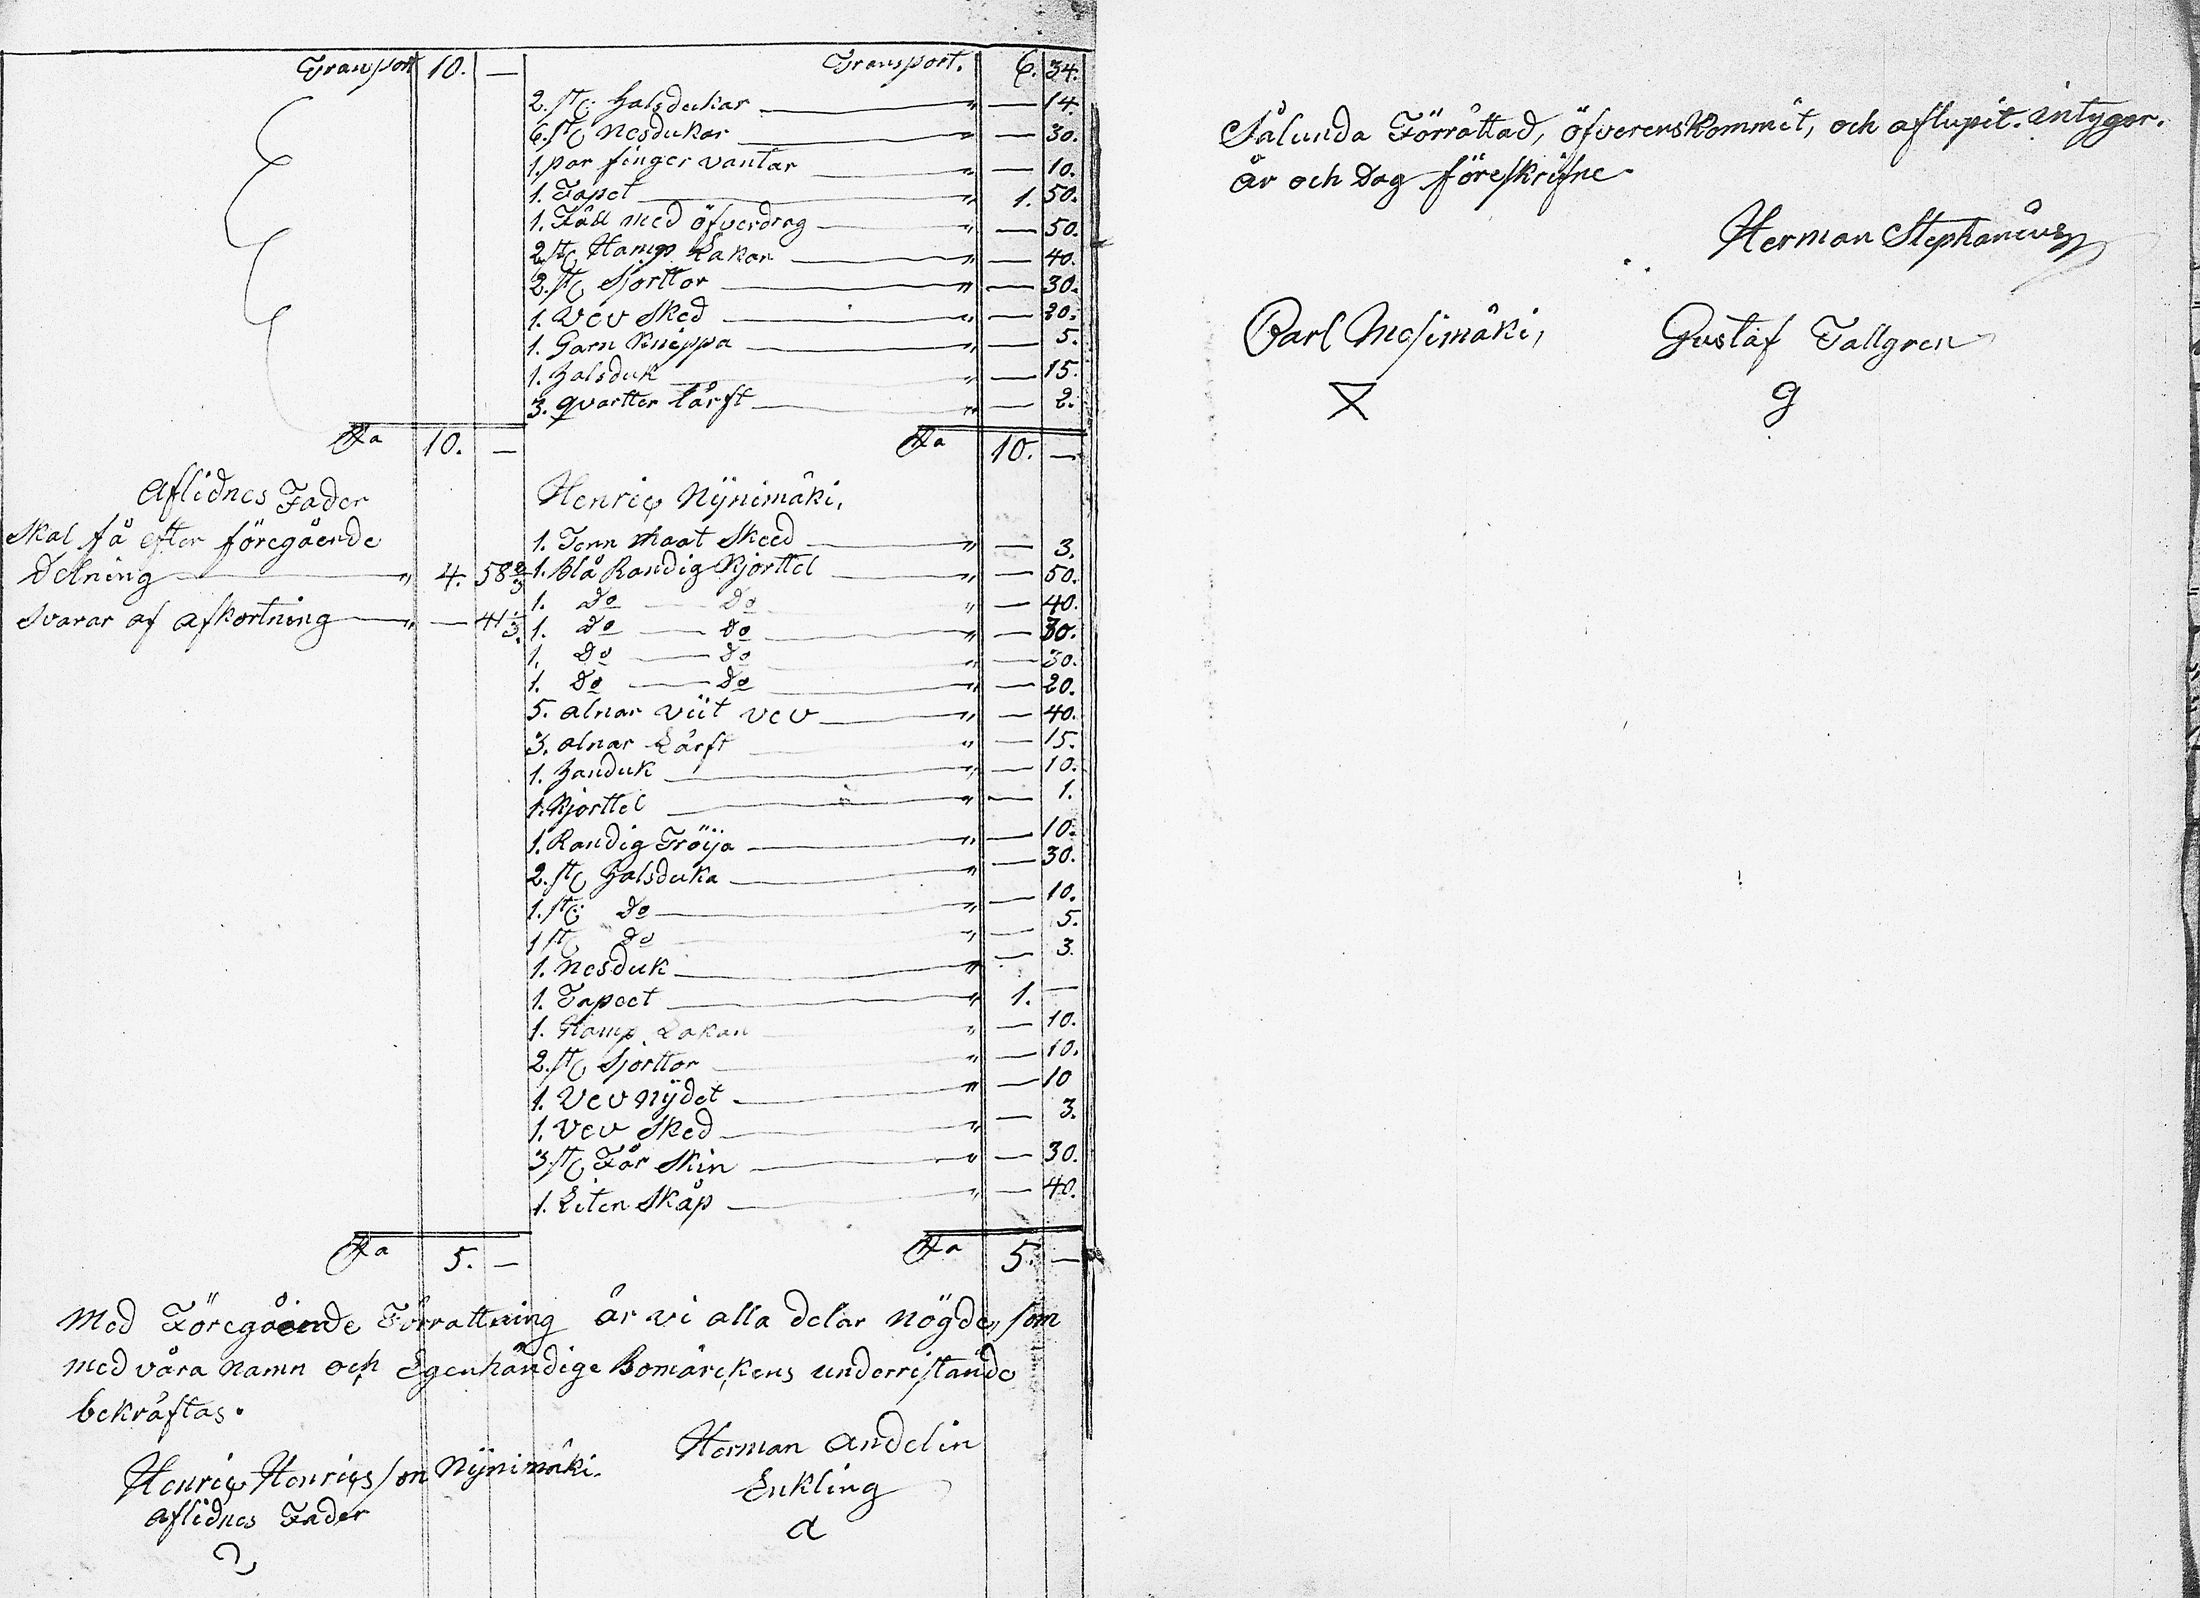 Transport 10. — Transport. 6. 34.
2. st: Halsdukar — " — 14.
6. st: Nesdukar — " — 30.
1. par finger vantar — " — 10.
1. Tapet — " 1. 50.
1. Fäll med öfverdrag — " — 50.
2. st: Hamp Lakan — " — 40.
2. st: Sjorttor — " — 30.
1. Vev Sked — " — 20.
1. Garn Knippa — " — 5.
1. Halsduk — " — 15.
3. qvartter Lärft — " — 2.
Sa 10. — Sa 10. —
Aflidnes Fader Henric Nÿnimäki.
Skal få efter föregående 1. Tenn Maat Skeed — " — 3.
Delning — " 4. 58 2/3 1. Blå Randig Kjorttel — " — 50.
1. Do — Do " — 40.
Svarar af afkortning — " — 41 1/3. 1. Do — Do — " — 30.
1. Do — Do — " — 30.
1. Do — Do — " — 20.
5. alnar viit vev — " — 40.
3. alnar Lärft — " — 15.
1. Handuk — " — 10.
1. Kjorttel — " — 1.
1. Randig Tröija — " — 10.
2. st: Halsduka — " — 30.
1. st: Do — " — 10.
1 st: Do — " — 5.
1. Nesduk — " — 3.
1. Tapeet — " 1. —
1. Hamp Lakan — " — 10.
2. st: Sjorttor — " — 10.
1. Vev Nÿdet — " — 10
1. Vev Sked — " — 3.
3 st: Får Skin — " — 30.
1. Liten Skåp — " — 40.
Sa 5. — Sa 5. —
Med Föregående Förrattning är vi alla delar Nögde, som
med våra Namn och Egenhändige Bomärckens underristande
bekräftas.
Henric Henricsson Nÿnimäki. Herman Andelin
Aflidnes Fader Enkling
Sålunda Förrättad, öfverenskommit, och aflupit. intygar.
År och Dag föreskrifne.
Herman Stephanéus
Carl Mesimäki, Gustaf Tallgren